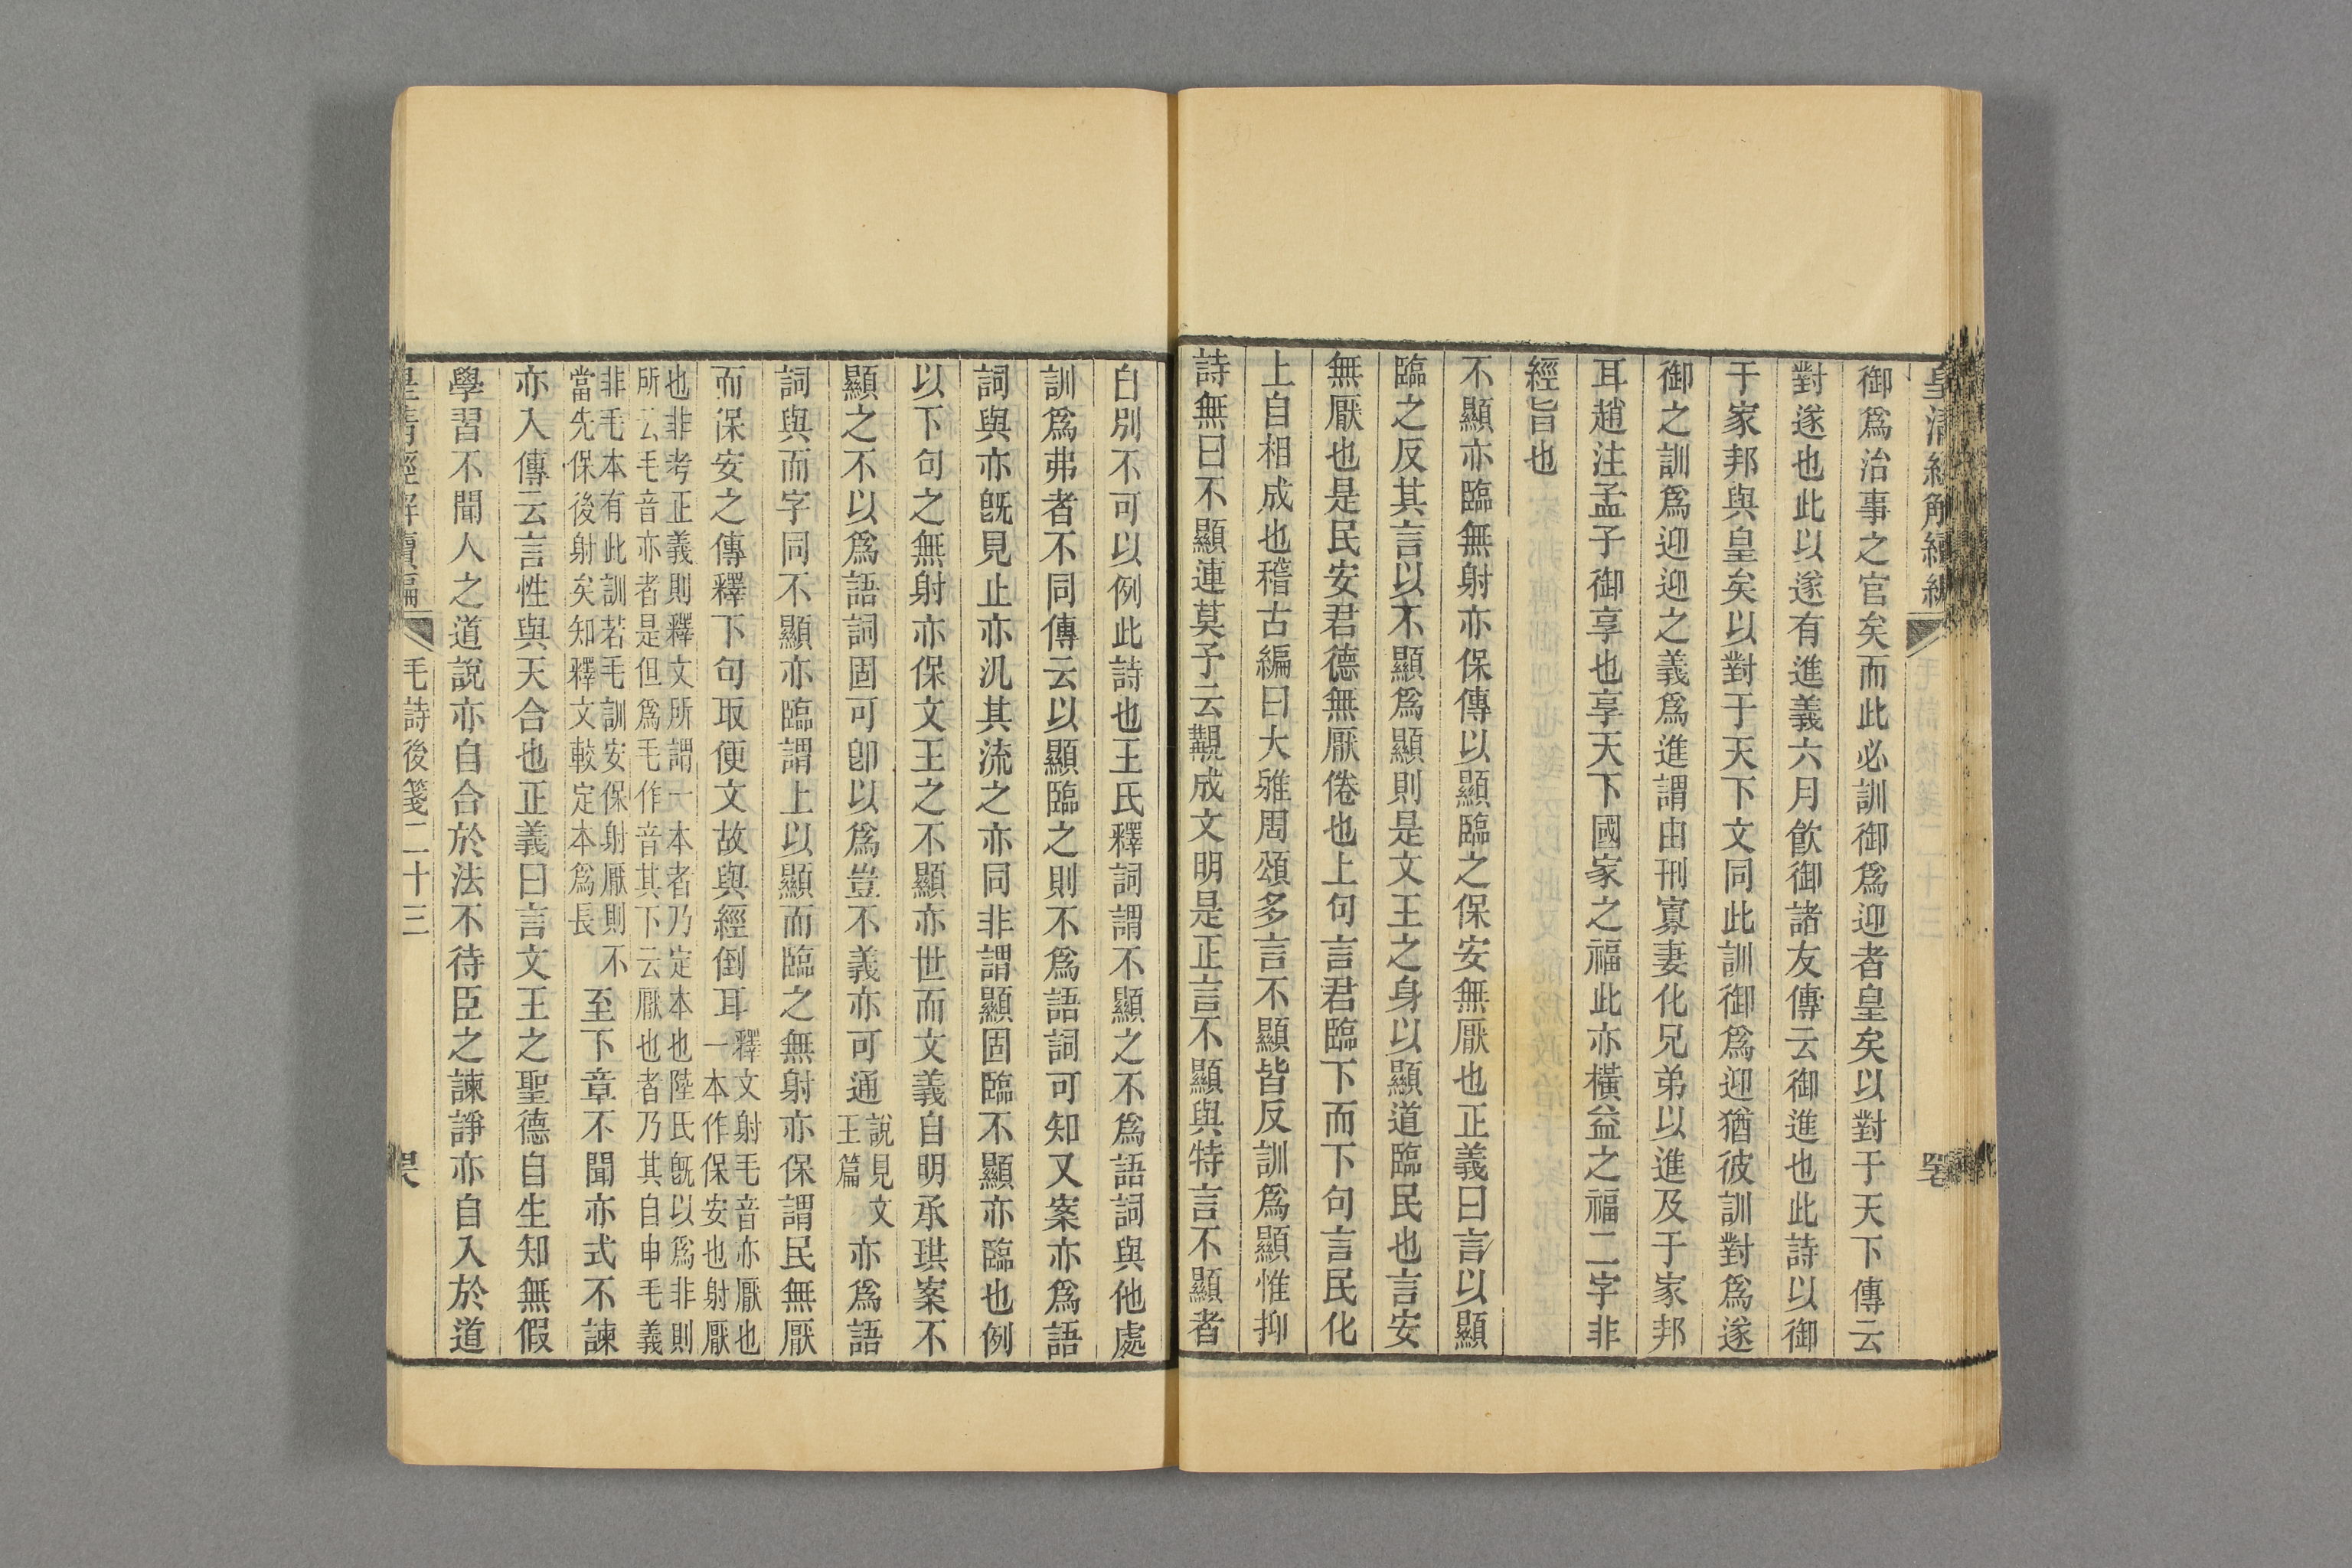 御爲治事之官矣而此必訓御爲迎者皇矣以對于天下傳云
對遂也此以遂有進義六月飮御諸友傳云御進也此詩以御
于家邦與皇矣以對于天下文同此訓御爲迎猶彼訓對爲遂
御之訓爲迎迎之義爲進謂由刑寡妻化兄弟以進及于家邦
耳趙注孟子御享也享天下國家之福此亦橫益之福二字非
經旨也
不顯亦臨無射亦保傳以顯臨之保安無厭也正義曰言以顯
臨之反其言以不顯爲顯則是文王之身以顯道臨民也言安
無厭也是民安君德無厭倦也上句言君臨下而下句言民化
上自相成也稽古編曰大雅周頌多言不顯皆反訓爲顯惟抑
詩無曰不顯連莫予云覯成文明是正言不顯與特言不顯者
自別不可以例此詩也王氏釋詞謂不顯之不爲語詞與他處
訓爲弗者不同傳云以顯臨之則不爲語詞可知又案亦爲語
詞與亦旣見止亦汎其流之亦同非謂顯固臨不顯亦臨也例
以下句之無射亦保文王之不顯亦世而文義自明承珙案不
顯之不以爲語詞固可卽以爲豈不義亦可通說見文王篇亦爲語
詞與而字同不顯亦臨謂上以顯而臨之無射亦保謂民無厭
而保安之傳釋下句取便文故與經倒耳釋文射毛音亦厭也一本作保安也射厭
也非考正義則釋文所謂一本者乃定本也陸氏旣以爲非則
所云毛音亦者是但爲毛作音其下云厭也者乃其自申毛義
非毛本有此訓若毛訓安保射厭則不
當先保後射矣知釋文較定本爲長至下章不聞亦式不諫
亦入傳云言性與天合也正義曰言文王之聖德自生知無假
學習不聞人之道說亦自合於法不待臣之諫諍亦自入於道
毛詩後箋二十三